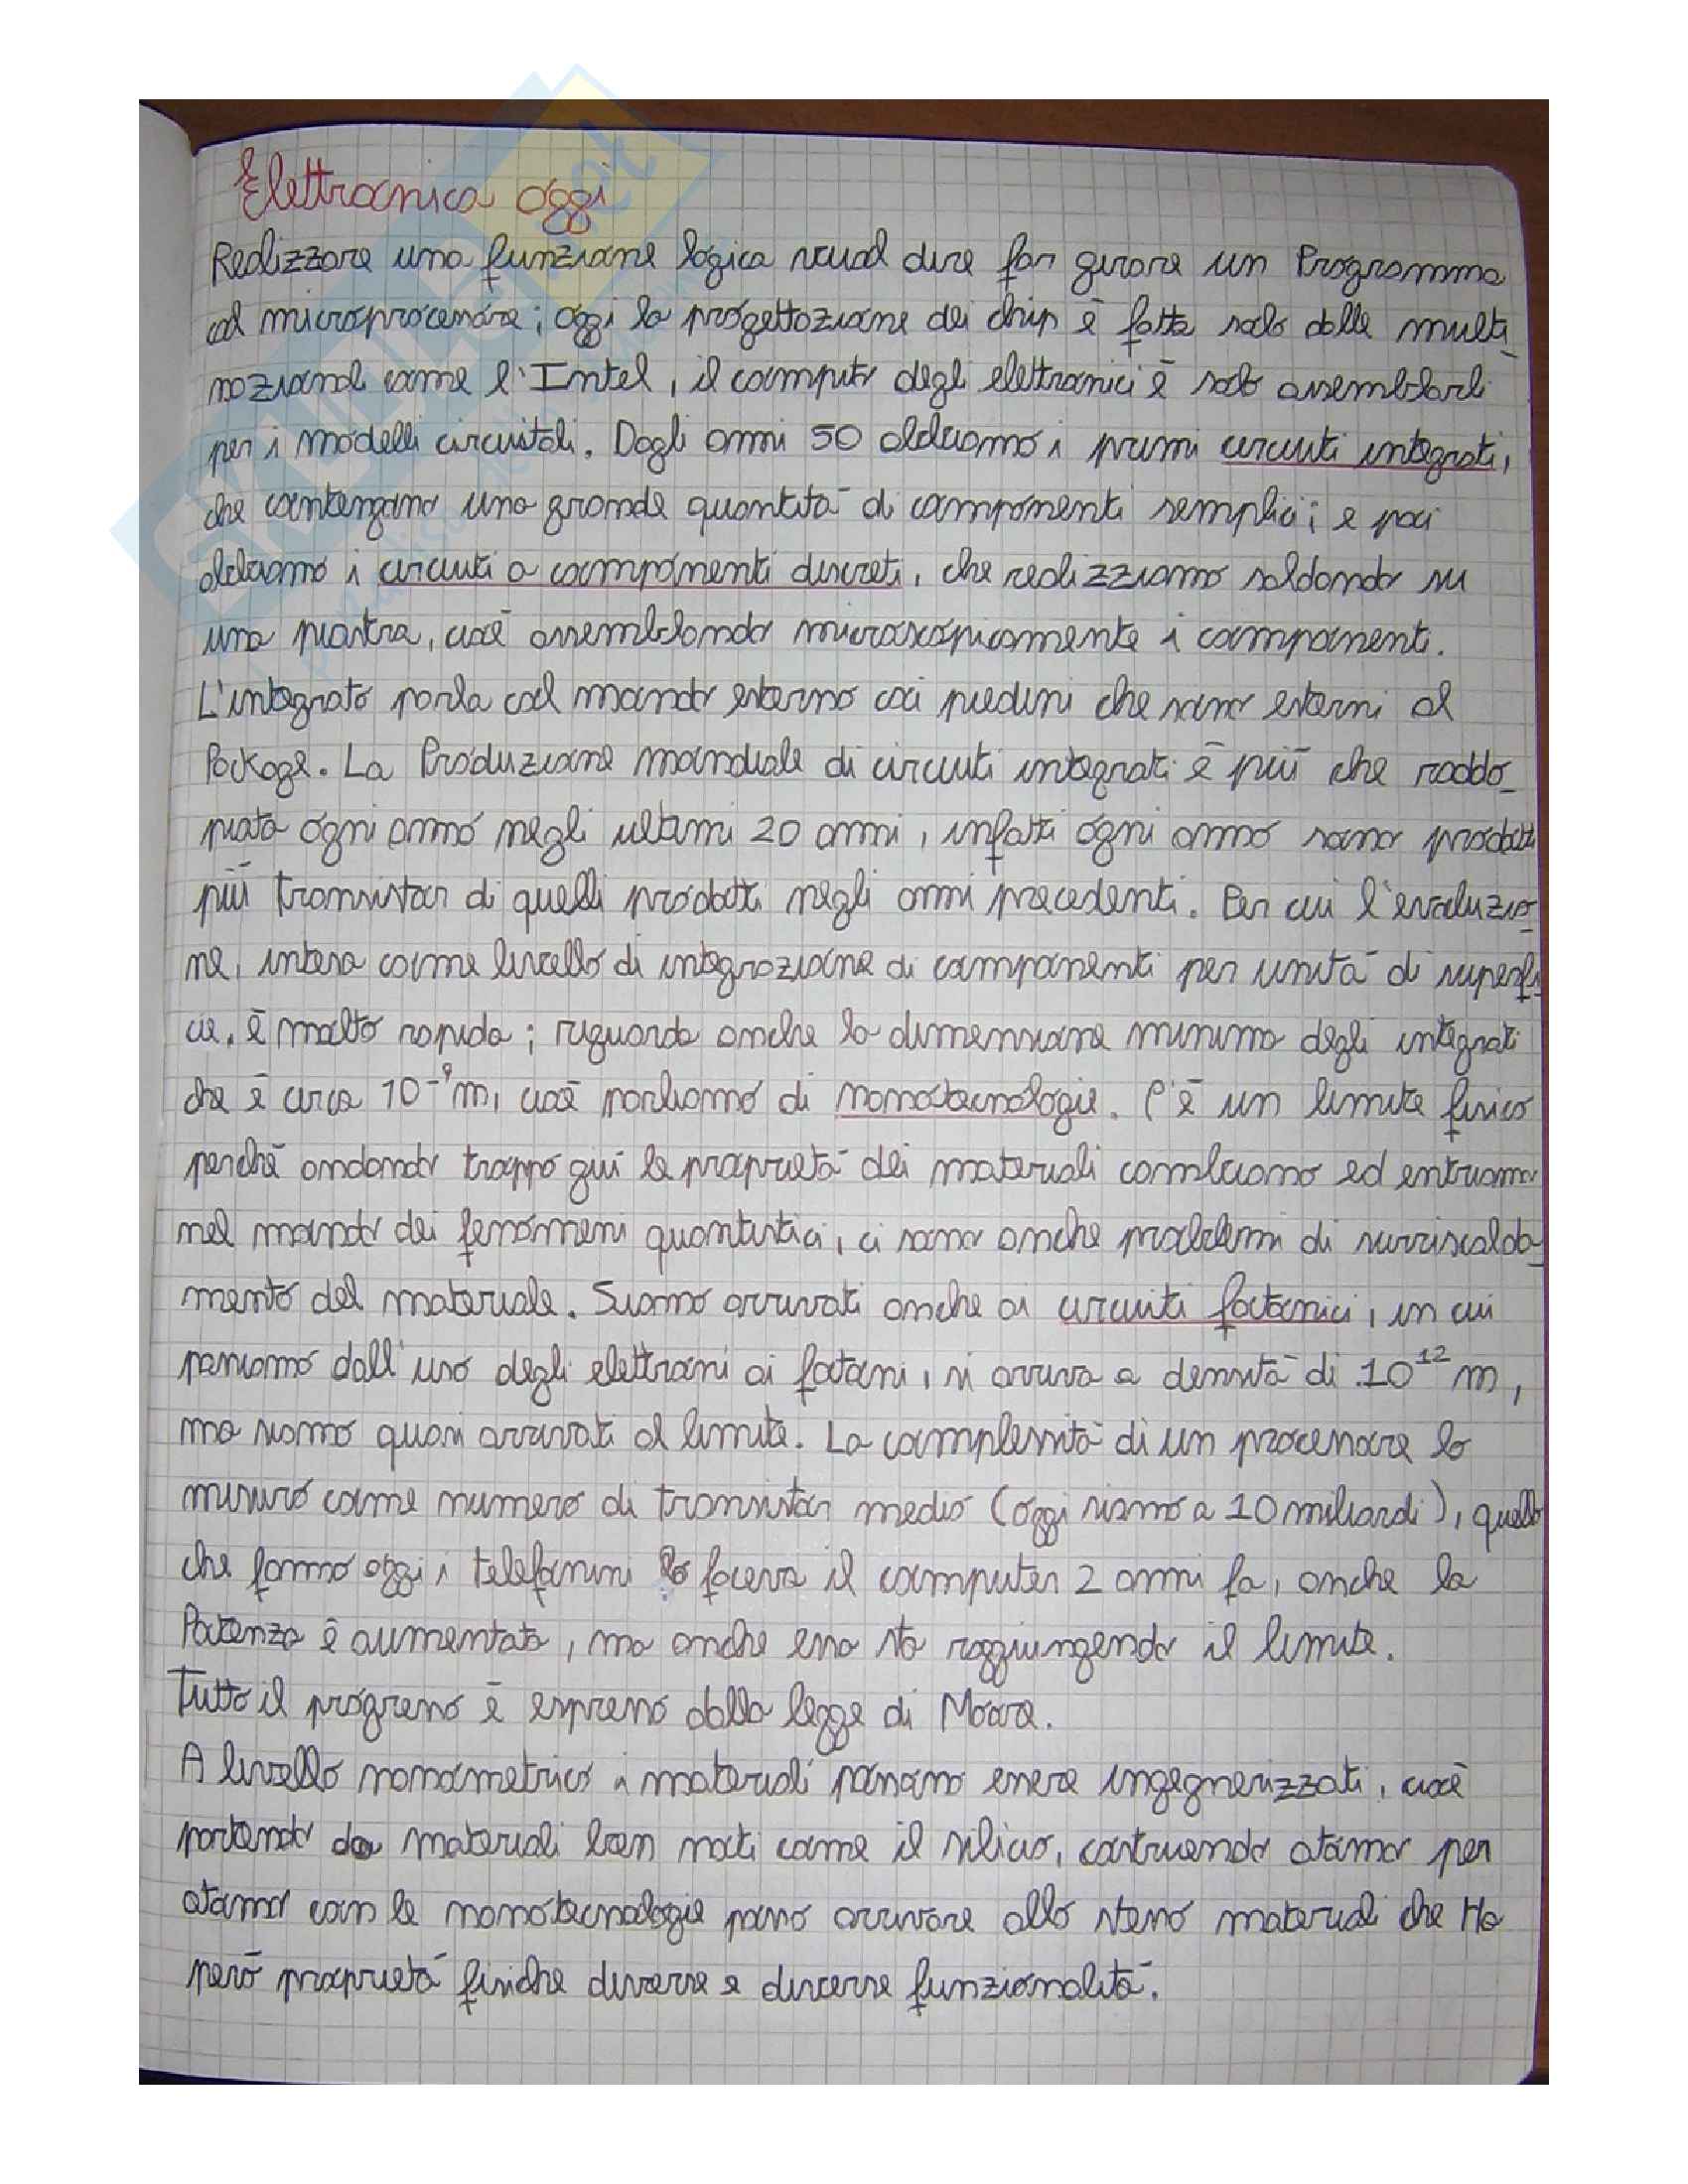 Elettronica oggi
Realizzare una funzione logica vuol dire far girare un Programma
al microprocessore; oggi la progettazione dei chip è fatta solo dalle multi
nazionali come l'Intel, il compito degli elettronici è solo assemblarli
per i modelli circuitali. Dagli anni 50 abbiamo i primi circuiti integrati,
che contengono una grande quantità di componenti semplici; e poi
abbiamo i circuiti a componenti discreti, che realizziamo saldando su
una piastra, cioè assemblando microscopicamente i componenti.
L'integrato parla col mondo esterno coi piedini che sono esterni al
Package. La Produzione mondiale di circuiti integrati è più che raddo_
piata ogni anno negli ultimi 20 anni, infatti ogni anno sono prodotti
più transistor di quelli prodotti negli anni precedenti. Per cui l'evoluzio_
ne, intesa come livello di integrazione di componenti per unità di superfi_
cie, è molto rapida; riguarda anche la dimensione minima degli integrati
che è circa 10⁻⁹m, cioè parliamo di nanotecnologie. C'è un limite fisico
perché andando troppo giù le proprietà dei materiali cambiano ed entriamo
nel mondo dei fenomeni quantistici, ci sono anche problemi di surriscalda_
mento del materiale. Siamo arrivati anche ai circuiti fotonici, in cui
passiamo dall'uso degli elettroni ai fotoni, si arriva a densità di 10¹² m,
ma siamo quasi arrivati al limite. La complessità di un processore la
misuro come numero di transistor medio (oggi siamo a 10 miliardi), quello
che fanno oggi i telefonini lo faceva il computer 2 anni fa, anche la
Potenza è aumentata, ma anche essa sta raggiungendo il limite.
Tutto il progresso è espresso dalla legge di Moore.
A livello nanometrico i materiali possono essere ingegnerizzati, cioè
partendo da materiali ben noti come il silicio, costruendo atomo per
atomo con le nanotecnologie posso arrivare allo stesso material che Ha
però proprietà fisiche diverse e diverse funzionalità.